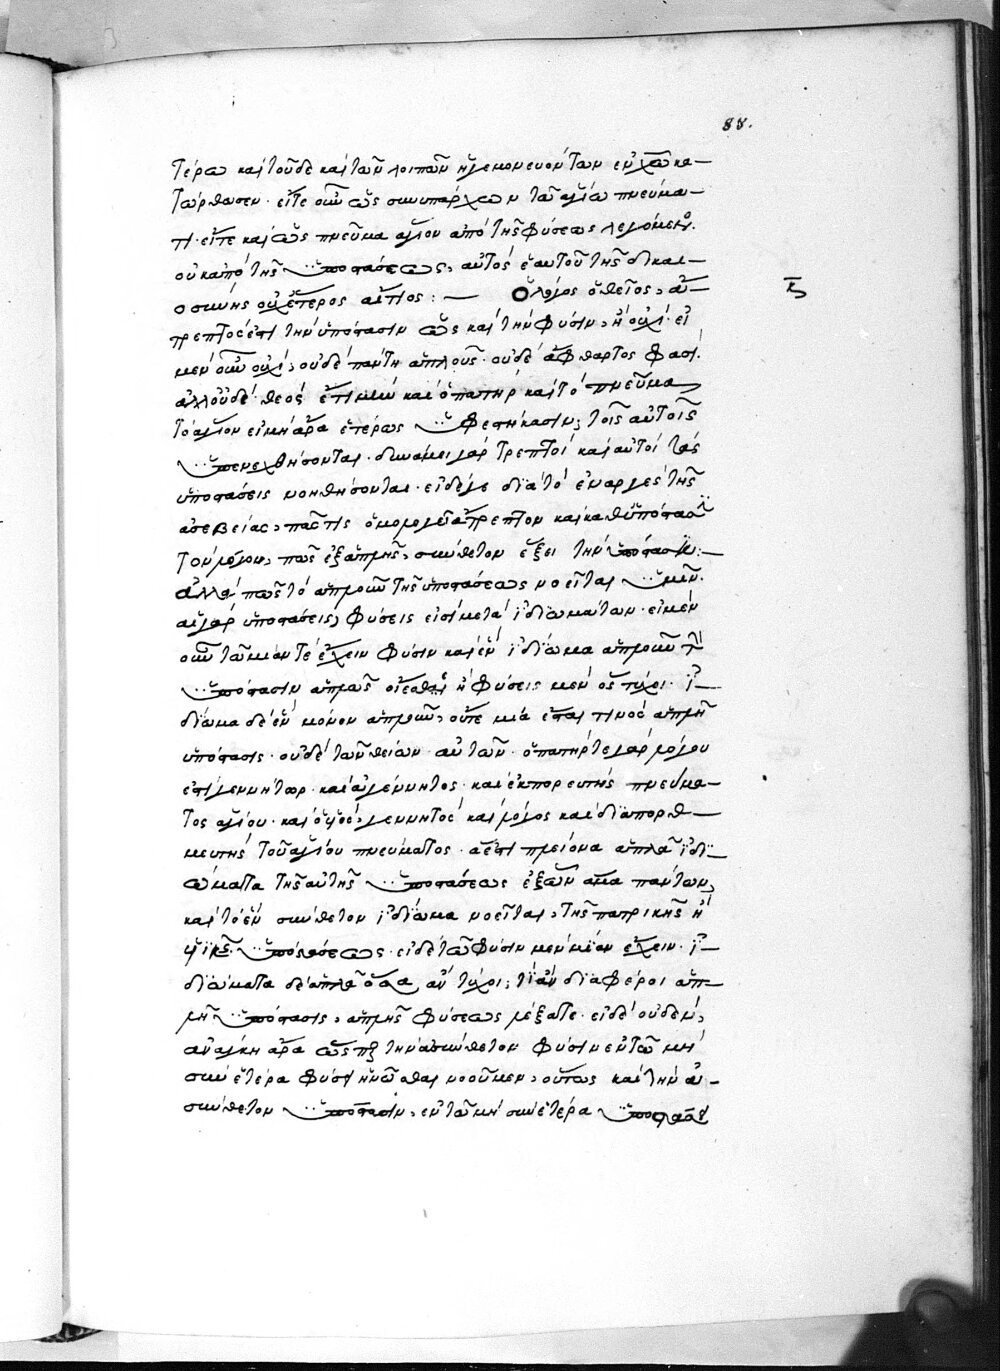 88.
τέρω καὶ τοῦδε καὶ τῶν λοιπῶν ἡγεμονευόντων ἐν χῶ κα-
τώρθωσεν· εἴτε οὖν ὡς συνυπάρχων τῶ ἁγίω πνεύμα-
τι· εἴτε καὶ ὡς πνεῦμα ἅγιον ἀπὸ τῆς φύσεως λεγόμενος.
οὐκ ἀπὸ τῆς ὑποστάσεως, αὐτὸς ἑαυτοῦ τῆς δικαι-
οσύνης οὐχ ἕτερος αἴτιος: — Ὁ λόγος ὁ θεῖος, ἄ-
τρεπτος ἐστὶ τὴν ὑπόστασιν ὡς καὶ τὴν φύσιν, ἢ οὐχί· εἰ
μὲν οὖν οὐχί, οὐδὲ πάντη ἁπλοῦς· οὐδὲ ἄφθαρτος φασί.
ἀλλ' οὐδὲ θεός ἔτι καὶ ὁ πατὴρ καὶ τὸ πνεῦμα
τὸ ἅγιον εἰ μὴ ἄρα ἑτέρως ὑφεστήκασιν, τοῖς αὐτοῖς
ὑπενεχθήσονται· δυνάμει γὰρ τρεπτοὶ καὶ αὐτοὶ τὰς
ὑποστάσεις νοηθήσονται· εἰ δέ γε διὰ τὸ ἐναργὲς τῆς
ἀσεβείας, πᾶς τις ὁμολογεῖ ἄτρεπτον καὶ καθ' ὑπόστασιν
τὸν λόγον, πῶς ἐξ ἁπλῆς, σύνθετον ἕξει τὴν ὑπόστασιν:—
ἀλλὰ πῶς τὸ ἁπλοῦν τῆς ὑποστάσεως νοεῖται ὑμῖν.
αἱ γὰρ ὑποστάσεις, φύσεις εἰσὶ μετὰ ἰδιωμάτων· εἰ μὲν
οὖν τῶ μίαν τὲ ἔχειν φύσιν καὶ ἓν ἰδίωμα ἁπλοῦν τὴν
ὑπόστασιν ἁπλῶς οἴεσθε ἢ φύσεις μὲν ὅς τύχοι· ἰ-
δίωμα δὲ ἓν μόνον ἁπλοῦν, οὔτε μία ἔσται τινὸς ἁπλῆ
ὑπόστασις· οὐδὲ τῶν θείων αὐτῶν· ὁ πατήρ τε γὰρ λόγου
ἐστὶ γεννήτωρ· καὶ ἀγέννητος· καὶ ἐκπορευτὴς πνεύμα-
τος ἁγίου· καὶ ὁ υἱὸς, γεννητὸς καὶ λόγος καὶ διαπορθ-
μευτὴς τοῦ ἁγίου πνεύματος· ἅ ἐστι πλείονα ἁπλᾶ ἰδι-
ώματα τῆς αὐτῆς ὑποστάσεως ἐξ ὧν ἅμα πάντων,
καὶ τὸ ἓν σύνθετον ἰδίωμα νοεῖται, τῆς πατρικῆς ἢ
υἱικῆς ὑποστάσεως· εἰ δὲ τῶ φύσιν μὲν μίαν ἔχειν· ἰ-
διώματα δὲ ἁπλᾶ ὅσα ἂν τύχοι, τί ἂν διαφέροι ἁπ-
λῆ ὑπόστασις, ἁπλῆς φύσεως λέξατε· εἰ δὲ οὐδὲν,
ἀνάγκη ἄρα ὥσπερ τὴν ἀσύνθετον φύσιν ἐν τῶ μὴ
σὺν ἑτέρα φύσει ἡνῶσθαι νοοῦμεν, οὕτως καὶ τὴν ἀ-
σύνθετον ὑπόστασιν, ἐν τῶ μὴ σὺν ἑτέρα ὑποστάσει